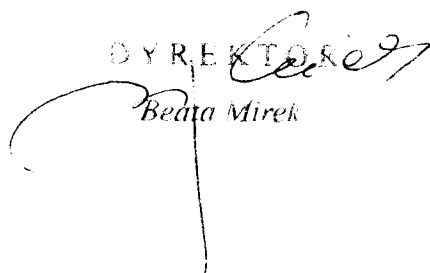 DYREKTOR
Beata Mirek